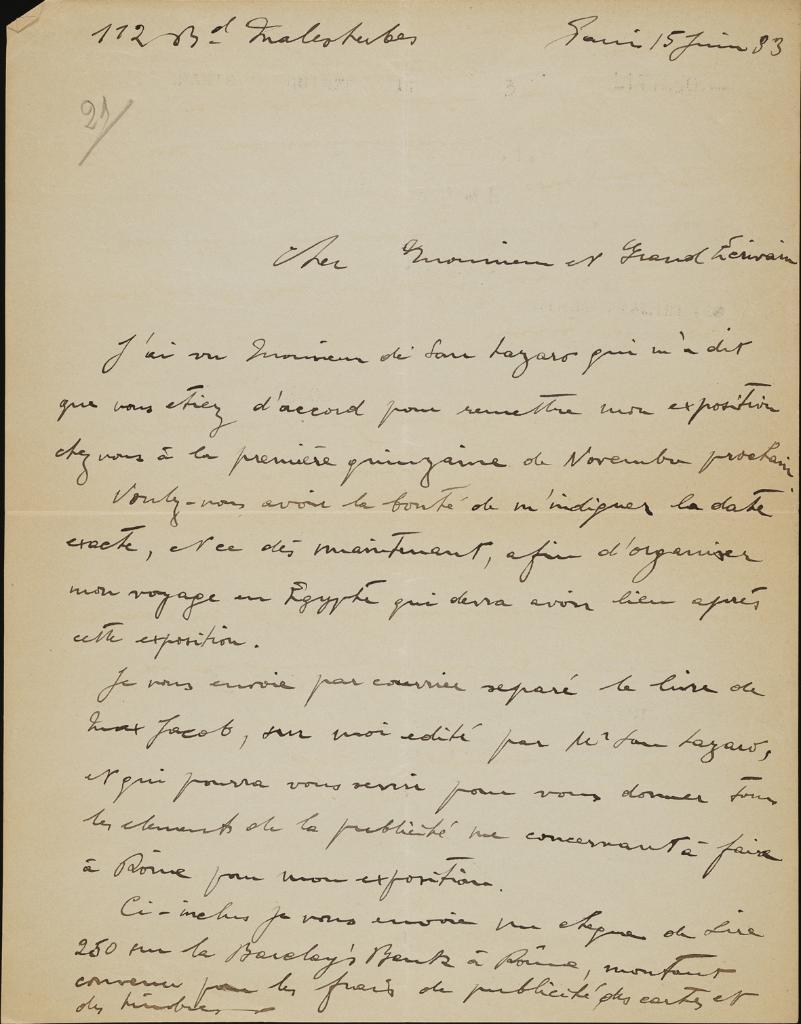 112 Bd Malesherbes Paris 15 Juin 33
21/
Cher Monsieur et Grand Écrivain
J'ai vu Monsieur di San Lazaro qui m'a dit
que vous etiez d'accord pour remettre mon exposition
chez vous à la première quinzaine de Novembre prochain
Voulez-vous avoir la bonté de m'indiquer la date
exacte, et ce dès maintenant, afin d'organiser
mon voyage en Égypte qui devra avoir lieu après
cette exposition.
Je vous envoie par courrier separé le livre de
Max Jacob, sur moi edité par Mr San Lazaro,
et qui pourra vous servir pour vous donner tous
les elements de la publicité me concernant à faire
à Rôme pour mon exposition.
Ci-inclus je vous envoie un cheque de Lire
250 sur la Barclay's Bank à Rôme, montant
convenu pour les frais de publicité, des cartes et
des timbres